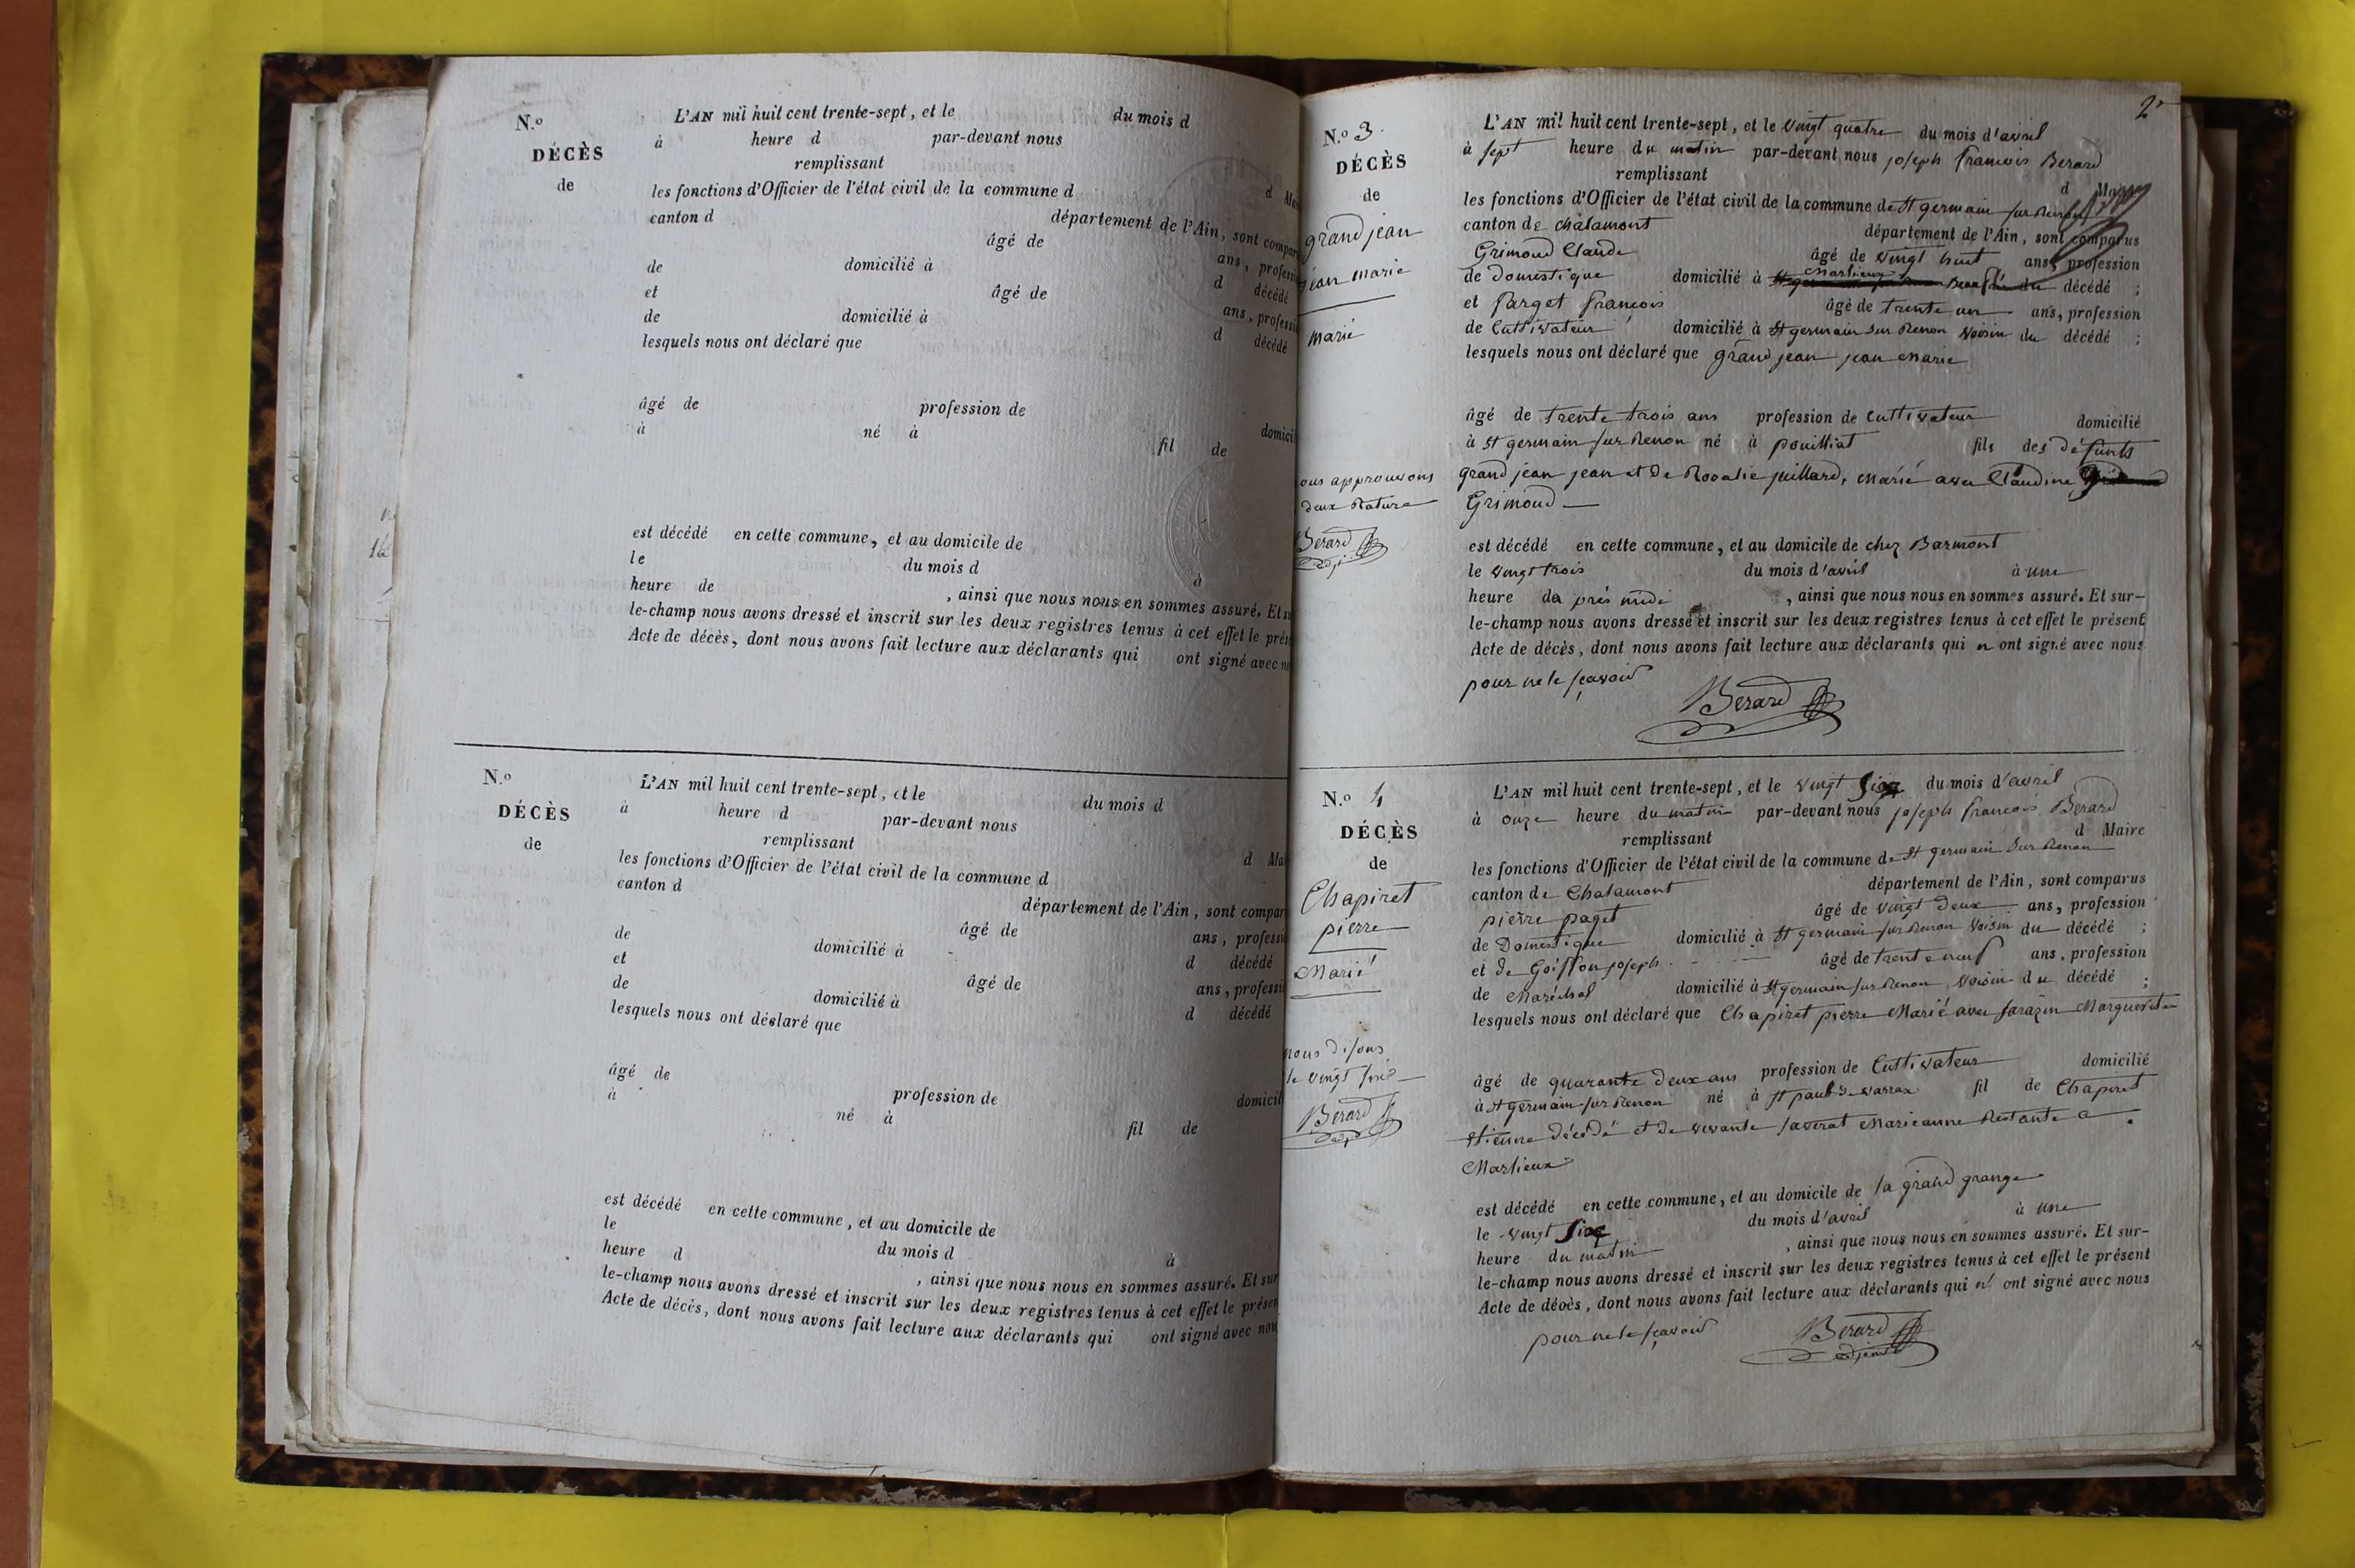 N.º
DÉCÈS
de
L'AN mil huit cent trente-sept, et le du mois d
à heure d par-devant nous
remplissant
les fonctions d'Officier de l'état civil de la commune d d Mai
canton d département de l'Ain, sont compar
âgé de ans, professi
de domicilié à d décédé
et âgé de ans, professi
de domicilié à d décédé
lesquels nous ont déclaré que
âgé de profession de domici
à né à fil de
est décédé en cette commune, et au domicile de
le du mois d à
heure de , ainsi que nous nous en sommes assuré. Et su
le-champ nous avons dressé et inscrit sur les deux registres tenus à cet effet le prés
Acte de décès, dont nous avons fait lecture aux déclarants qui ont signé avec no
N.º
DÉCÈS
de
L'AN mil huit cent trente-sept, et le du mois d
à heure d par-devant nous
remplissant
les fonctions d'Officier de l'état civil de la commune d d Mai
canton d département de l'Ain, sont compar
âgé de ans, professi
de domicilié à d décédé
et âgé de ans, professi
de domicilié à d décédé
lesquels nous ont déclaré que
âgé de profession de domicil
à né à fil de
est décédé en cette commune, et au domicile de
le du mois d à
heure d , ainsi que nous nous en sommes assuré. Et sur
le-champ nous avons dressé et inscrit sur les deux registres tenus à cet effet le présen
Acte de décès, dont nous avons fait lecture aux déclarants qui ont signé avec nou
2
N.º 3
DÉCÈS
de
grand jean
jean marie
marié
ous approuvons
deux Rature
Berard
L'AN mil huit cent trente-sept, et le vingt quatre du mois d'avril
à sept heure du matin par-devant nous joseph francois Berard
remplissant d Maire
les fonctions d'Officier de l'état civil de la commune de St germain sur Renon
canton de chalamont département de l'Ain, sont comparus
Grimoud Claude âgé de vingt huit ans, profession
de Domestique domicilié à Marlieux du décédé ;
et farget françois âgé de trente un ans, profession
de Cultivateur domicilié à St germain sur Renon voisin du décédé ;
lesquels nous ont déclaré que grand jean jean marie
âgé de trente trois ans profession de Cultivateur domicilié
à St germain sur Renon né à pouilliat fils des défunts
grand jean jean et de Rosalie juillard, marié avec Claudine
Grimoud
est décédé en cette commune, et au domicile de chez Barmont
le vingt trois du mois d'avril à une
heure da prés midi , ainsi que nous nous en sommes assuré. Et sur-
le-champ nous avons dressé et inscrit sur les deux registres tenus à cet effet le présent
Acte de décès, dont nous avons fait lecture aux déclarants qui n ont signé avec nous
pour ne le sçavoir
Berard
N.º 4
DÉCÈS
de
Chapiret
pierre
Marié
nous disons
le vingt six
Berard
L'AN mil huit cent trente-sept, et le vingt six du mois d'avril
à onze heure du matin par-devant nous joseph francois Berard
remplissant d Maire
les fonctions d'Officier de l'état civil de la commune de St germain sur Renon
canton de Chalamont département de l'Ain, sont comparus
pierre paget âgé de vingt deux ans, profession
de Domestique domicilié à St germain sur Renon voisin du décédé ;
et de Goiffon joseph âgé de trente neuf ans, profession
de Maréchal domicilié à St germain sur Renon voisin du décédé ;
lesquels nous ont déclaré que Chapiret pierre Marié avec sarazin Marguerite
âgé de quarante deux ans profession de Cultivateur domicilié
à St germain sur Renon né à St paul de varax fil de Chapiret
Etienne décédé et de vivante saverat Marieanne Restante a
Marlieux
est décédé en cette commune, et au domicile de la grand grange
le vingt six du mois d'avril à une
heure du matin , ainsi que nous nous en sommes assuré. Et sur-
le-champ nous avons dressé et inscrit sur les deux registres tenus à cet effet le présent
Acte de décès, dont nous avons fait lecture aux déclarants qui n' ont signé avec nous
pour ne le sçavoir
Berard
adjoint